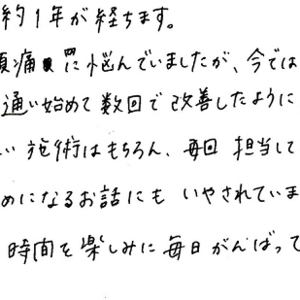 約1年が経ちます。
頭痛に悩んでいましたが、今では
通い始めて数回で改善したように
い施術はもちろん、毎回担当して
めになるお話にもいやされていま
時間を楽しみに毎日がんばって